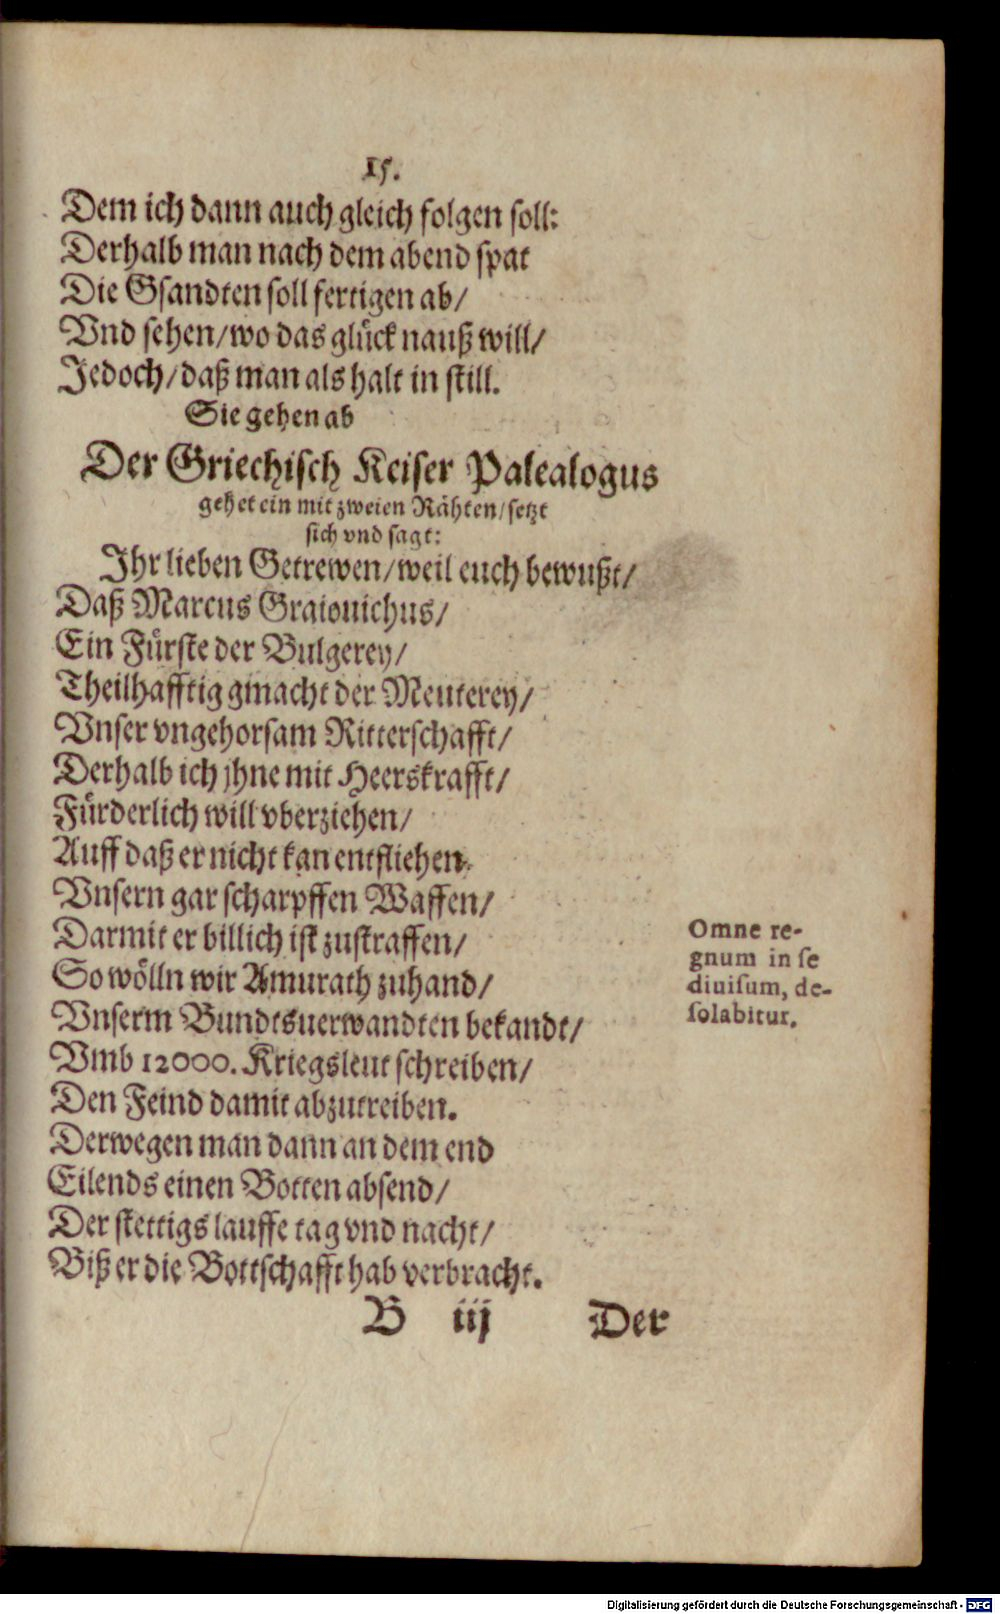 15.
Dem ich dann auch gleich folgen soll:
Derhalb man nach dem abend spat
Die Gsandten soll fertigen ab/
Vnd sehen/wo das glück nauß will/
Jedoch/daß man als halt in still.
Sie gehen ab
Der Griechisch Keiser Palealogus
gehet ein mit zweien Rähten/setzt
sich vnd sagt:
Ihr lieben Getrewen/weil euch bewußt/
Daß Marcus Graiouichus/
Ein Fürste der Bulgerey/
Theilhafftig gmacht der Meuterey/
Vnser vngehorsam Ritterschafft/
Derhalb ich jhne mit Heerskrafft/
Fürderlich will vberziehen/
Auff daß er nicht kan entfliehen.
Vnsern gar scharpffen Waffen/
Darmit er billich ist zustraffen/
So wölln wir Amurath zuhand/
Vnserm Bundtsuerwandten bekandt/
Vmb 12000. Kriegsleut schreiben/
Den Feind damit abzutreiben.
Derwegen man dann an dem end
Eilends einen Botten absend/
Der stettigs lauffe tag vnd nacht/
Biß er die Bottschafft hab verbracht.
Omne re-
gnum in se
diuisum, de-
solabitur.
B iij Der
Digitalisierung gefördert durch die Deutsche Forschungsgemeinschaft - DFG